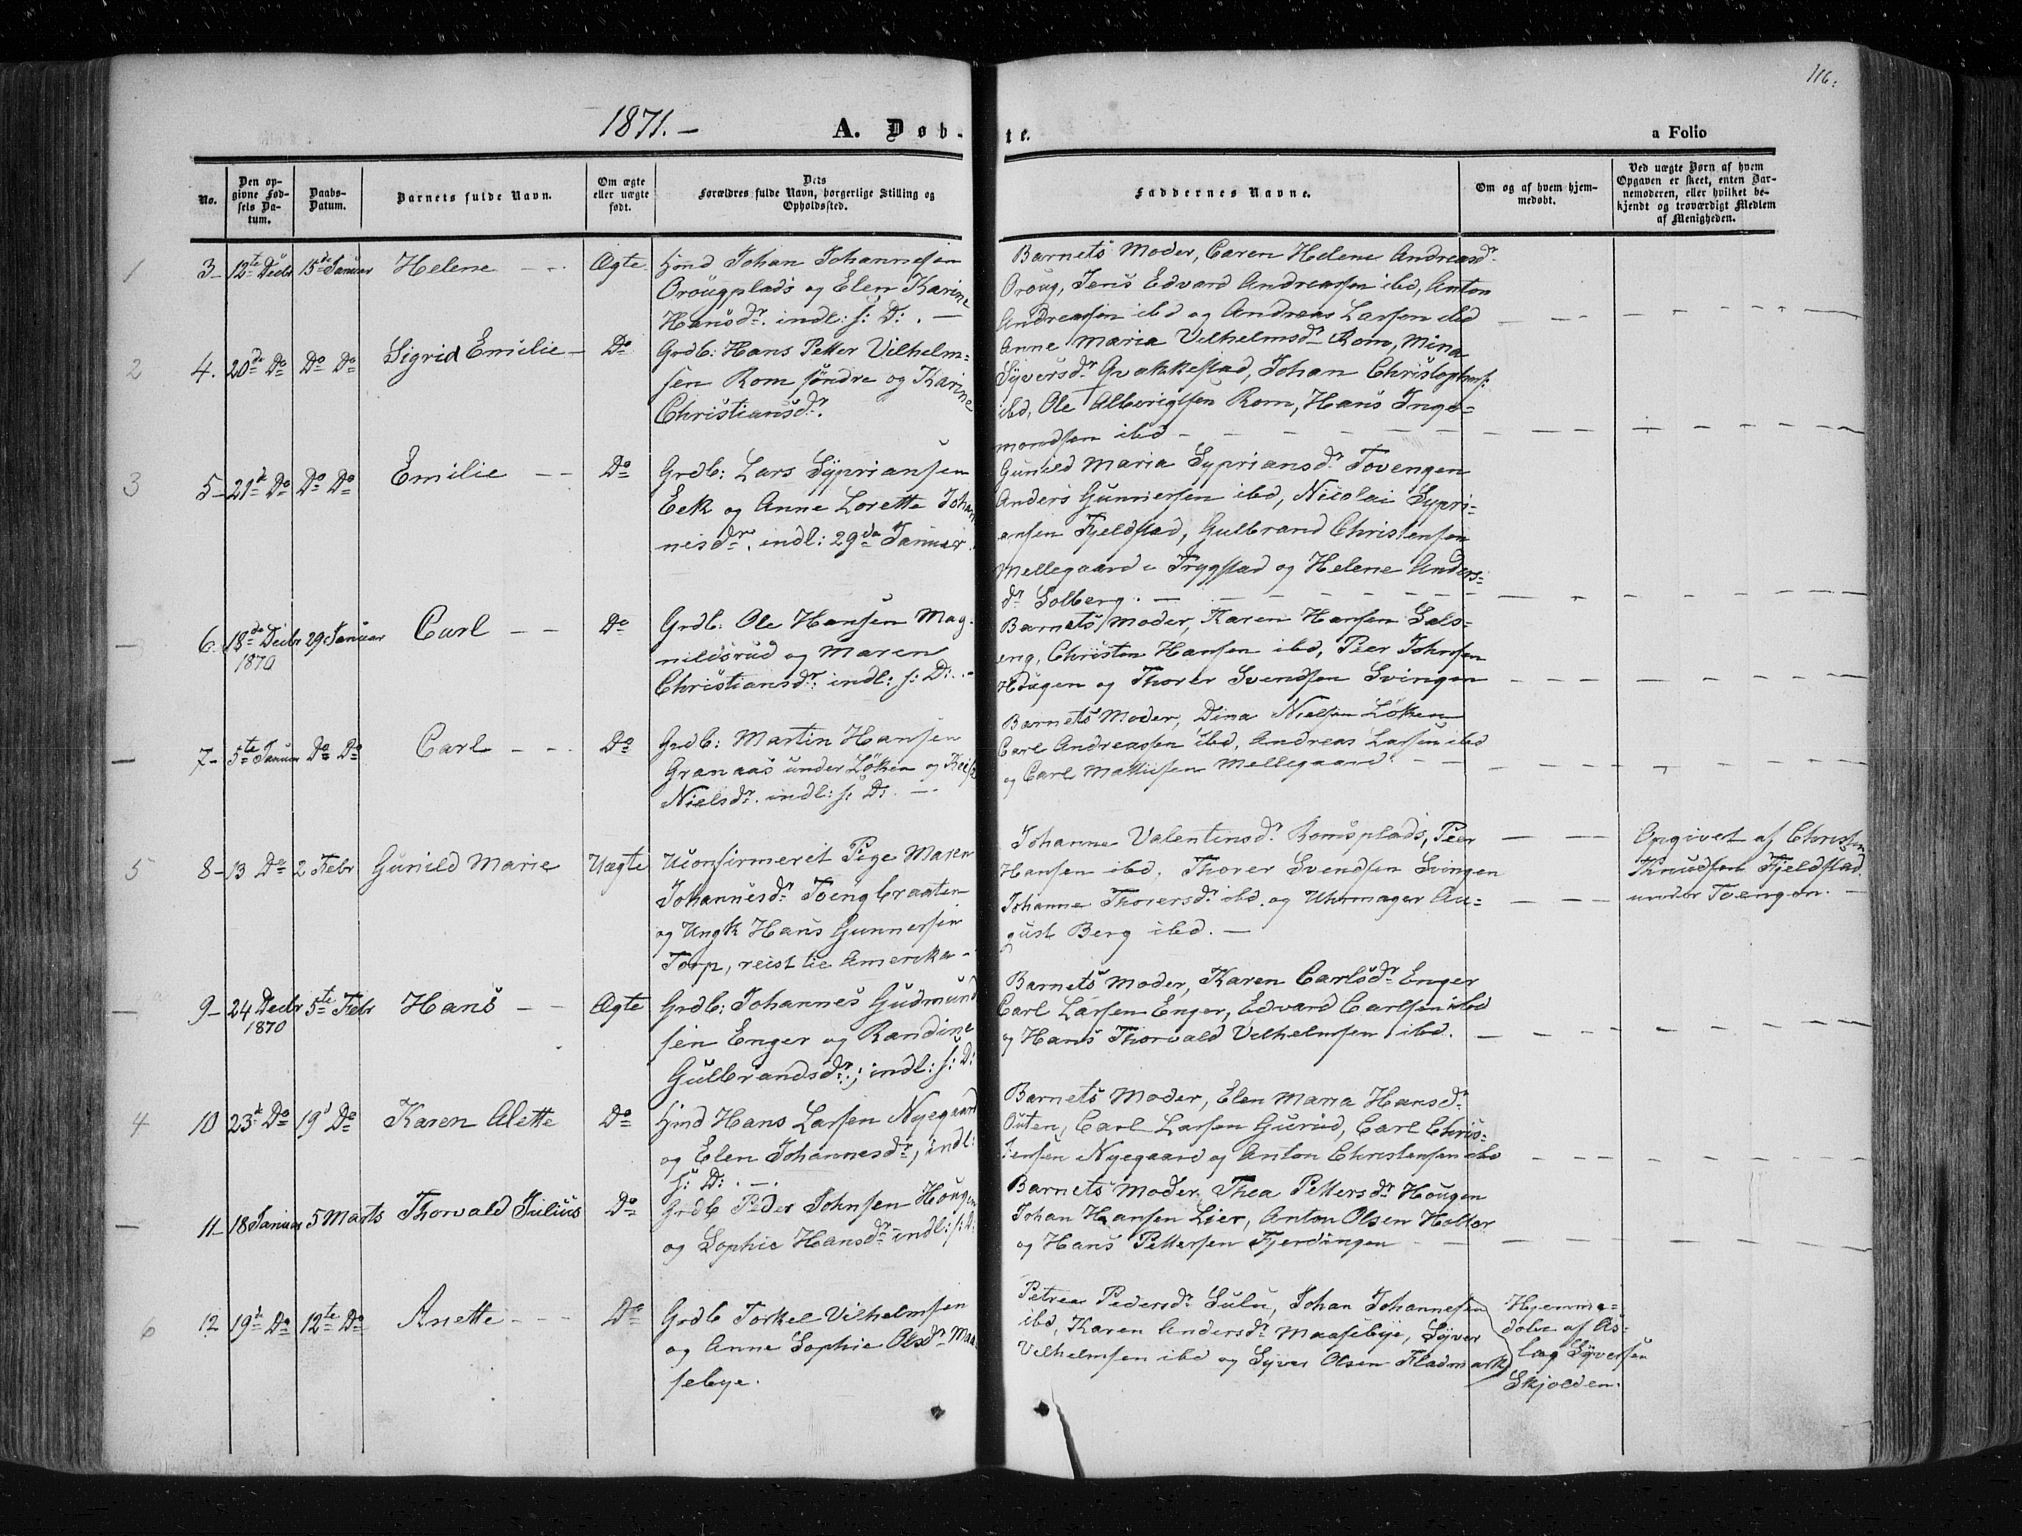 116.
1871.-
A. Døb-
te.
a Folio
No.
Den op-
givne Fød-
sels Da-
tum.
Daabs-
Datum.
Barnets fulde Navn.
Om ægte
eller uægte
født.
Dets
Forældres fulde Navn, borgerlige Stilling og
Opholdssted.
Faddernes Navne.
Om og af hvem hjem-
medøbt.
Ved uægte Børn af hvem
Opgaven er skeet, enten Bar-
nemoderen, eller hvilket be-
kjendt og troværdigt Medlem
af Menigheden.
1
3- 12te Decbr 15de Januar Helene Ægte
Hmd Johan Johannesen
Ørougplads og Elen Karine
Hansdr. indl: s: D:. -
Barnets Moder, Caren Helene Andreasdr
Øroug, Jens Edvard Andreasen ibd, Anton
Andreasen ibd og Andreas Larsen ibd
2
4. 20de Do Do Do Sigrid Emilie Do
Grdb: Hans Petter Vilhelm-
sen Rom søndre og Karine
Christiansdr.
Anne Maria Vilhelmsdr Rom, Mina
Syversdr Gvakkestad, Johan Christophers:
ibd, Ole Albrigtsen Rom, Hans Inge-
mondsen ibd
3
5- 21de Do Do Do Emilie Do
Grdb: Lars Sypriansen
Eek og Anne Lorette Johan
nisdr. indl: 29de Januar.
Gunild Maria Sypriansdr Tovengen
Anders Gunnersen ibd, Nicolai Sypri-
ansen Fjeldstad, Gulbrand Christensen
Mellegaard i Trygstad og Helene Anders-
dr Solberg.
6. 18de Decbr 29 Januar Carl Do
1870
Grdb: Ole Hansen Mag-
nildsrud og Maren
Christiansdr: indl: s: D:.-
Barnets Moder, Karen Hansen Sals-
eng, Christen Hansen ibd, Peer Johnsen
Hougen og Thorer Svendsen Svingen
7- 5te Januar Do Do Carl Do
Grdb: Martin Hansen
Granaas under Løken og
Nielsdr. indl: s: D:. -
Barnets Moder, Dina Nielsen Løken
Carl Andreassen ibd, Andreas Larsen ibd
og Carl Mathisen Mellegaard.
5
8- 13 Do 2 Febr Gunild Marie Uægte
Uconfirmeret Pige Maren
Johannesdr Toengbraaten
og Ungk Hans Gunnersen
Torp, reist til Amerika.
Johanne Valentinsdr Romsplads, Peer
Hansen ibd, Thorer Svendsen Svingen
Johanne Thorersdr ibd. og Uhrmager Au-
gust Berg ibd. -
Opgivet af Christen
Knudsen Fjeldstad
under Toengen. -
9- 24 Decbr 5te Febr Hans Ægte
1870
Grdb: Johannes Gudmund
sen Enger og Randine
Gulbrandsdr; indl: s: D:
Barnets Moder, Karen Carlsdr Enger
Carl Larsen Enger, Edvard Carlsen ibd
og Hans Thorvald Vilhelmsen ibd.
4
10 23de Do 19de Do Karen Alette Do
Hmd Hans Larsen Nyegaard
og Elen Johannesdr; indl:
s: D:. -.
Barnets Moder, Elen Maria Hansdr
Outen, Carl Larsen Gurud, Carl Chris-
tensen Nyegaard og Anton Christensen ibd
11- 18 Januar 5 Marts Thorvald Julius Do
Grdb Peder Johnsen Hougen
og Sophie Hansdr indl: s: D:
Barnets Moder, Thea Pettersdr Hougen
Johan Hansen Lier, Anton Olsen Holtor
og Hans Pettersen Fjerdingen
6
12 19de Do 12te Do Anette Do
Grdb Torkel Vilhelmsen
og Anne Sophie Olsdr Maa
sebye.
Petrea Pedersdr Sulu, Johan Johannesen
ibd, Karen Andersdr Maasebye, Syver
Vilhelmsen ibd og Syver Olsen Fladmark
Hjemme-
døbt af As-
lag Syversen
Skjolden.